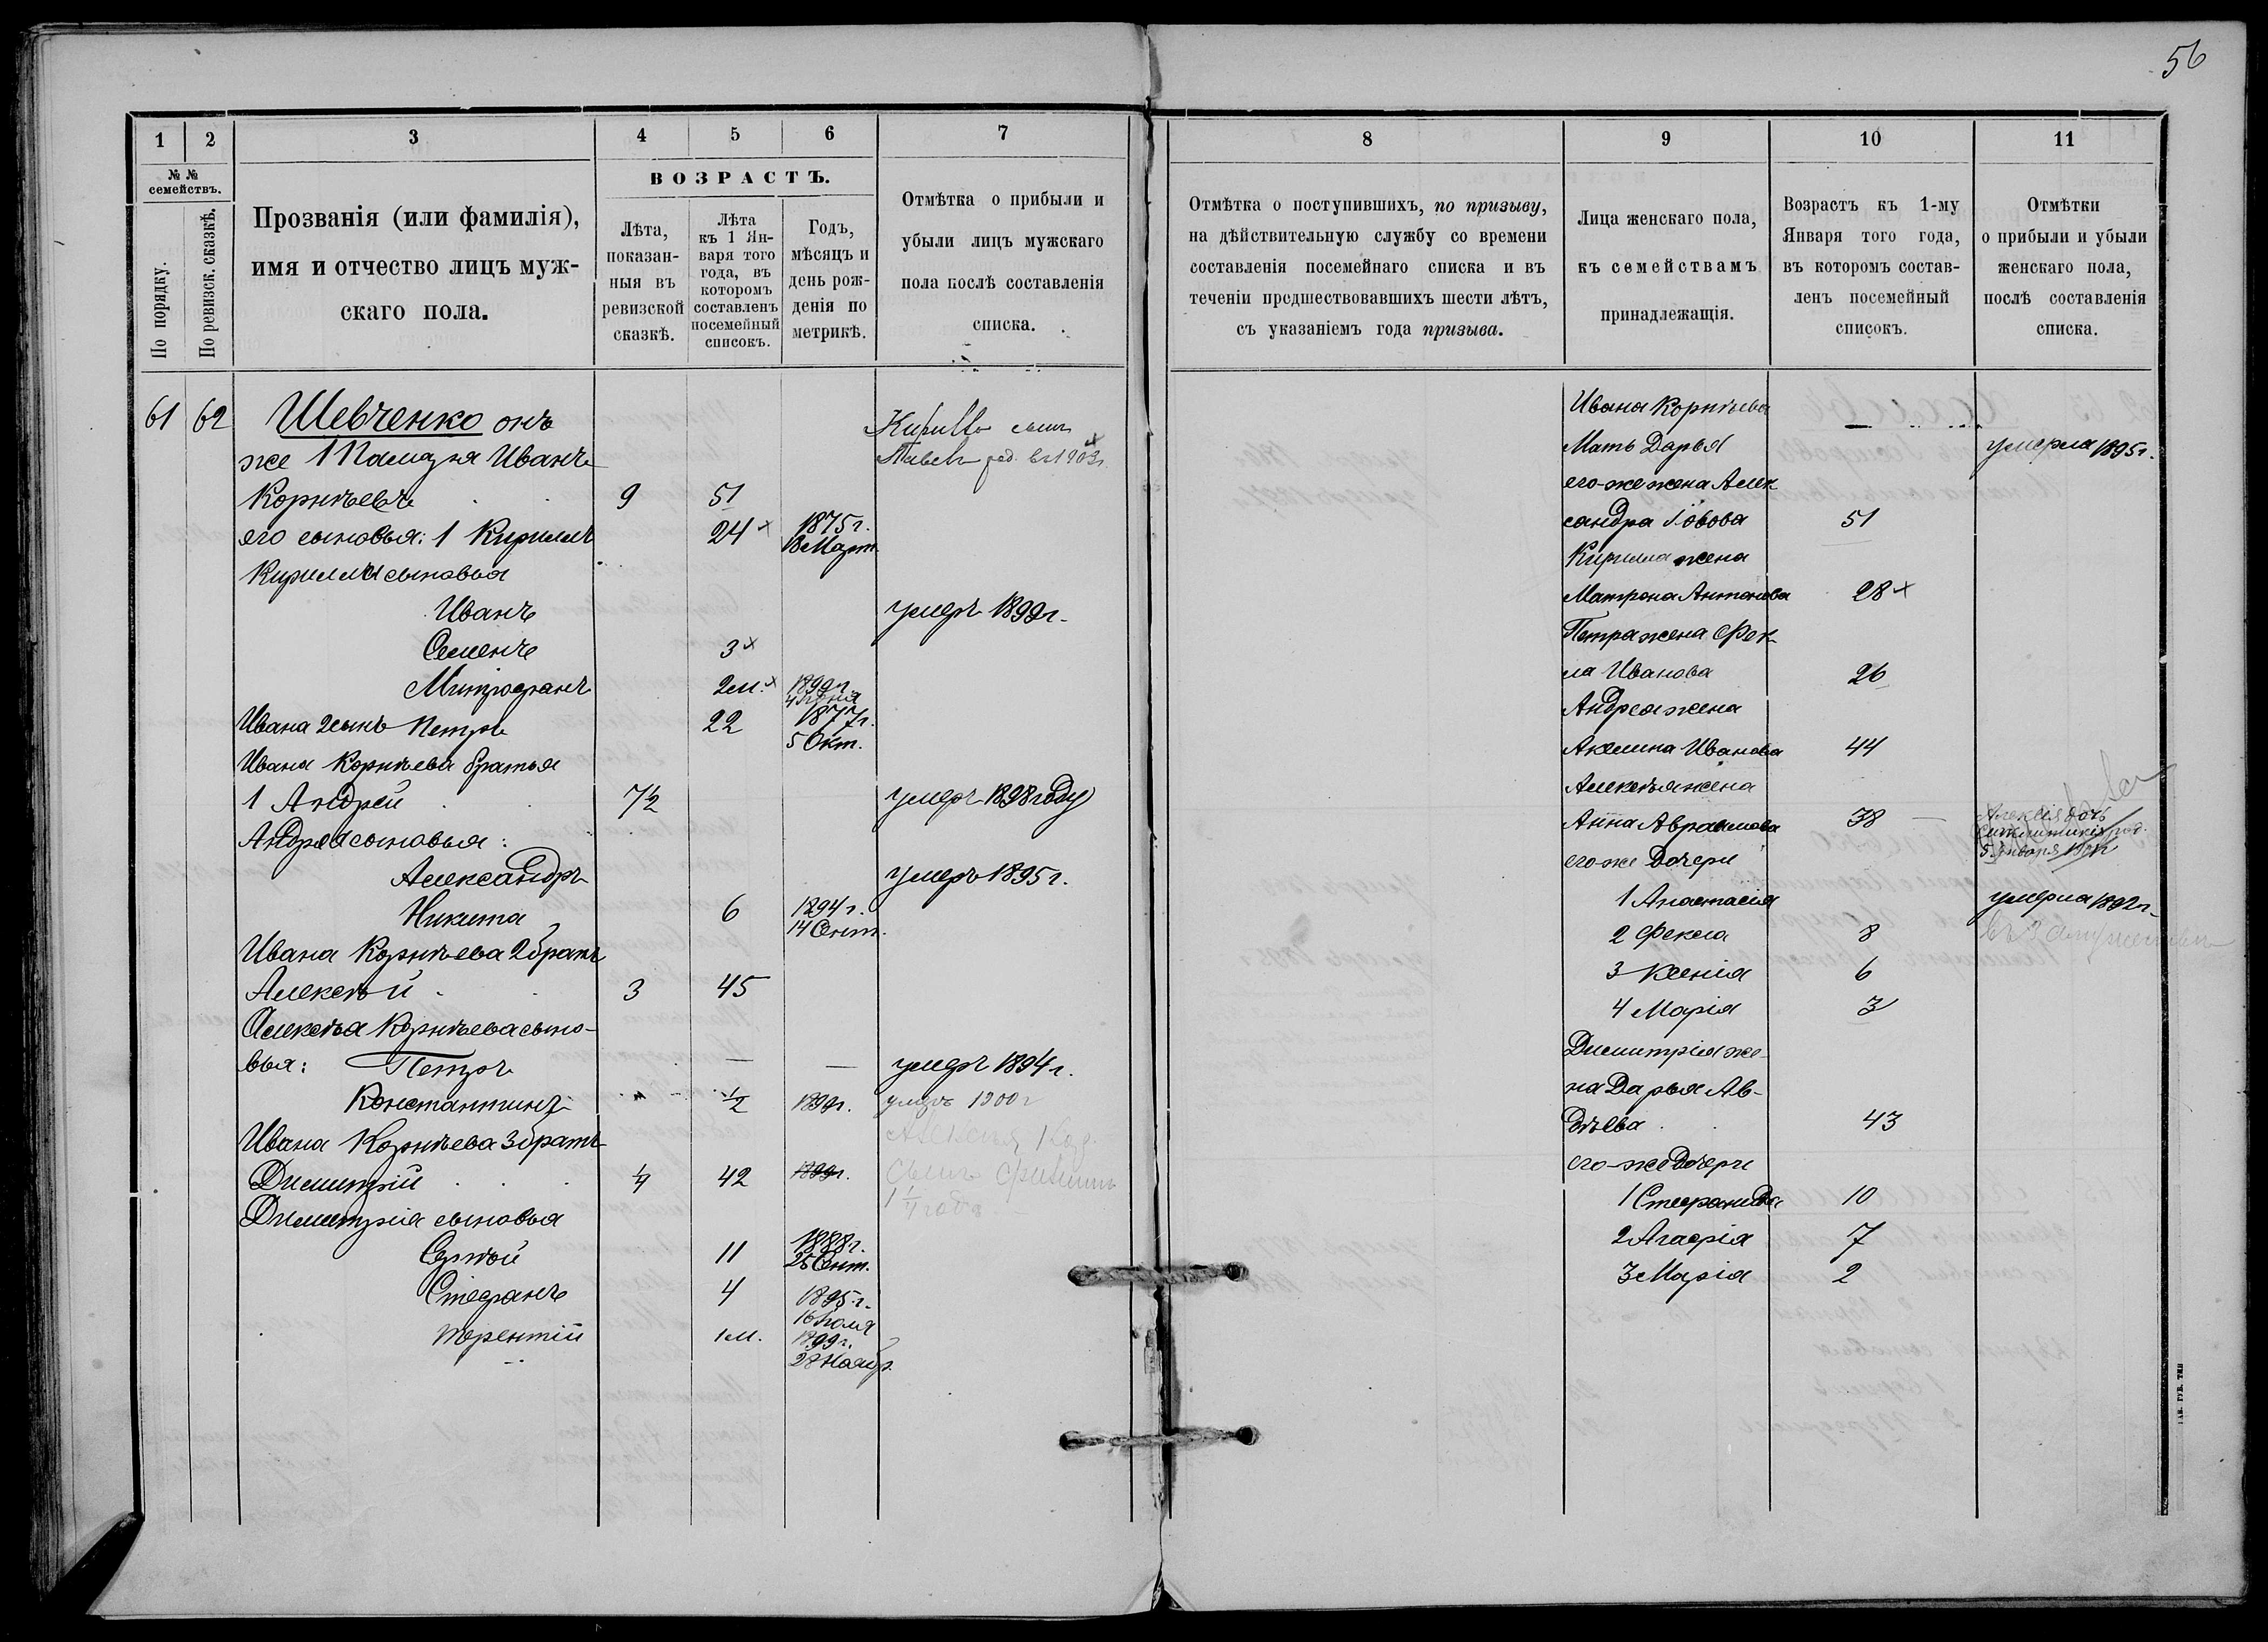 56
1
2
3
4
5
6
7
№ №
семействъ.
По порядку.
По ревизск. сказкѣ.
Прозванія (или фамилія),
имя и отчество лицъ муж-
скаго пола.
ВОЗРАСТЪ.
Лѣта,
показан-
ныя въ
ревизской
сказкѣ.
Лѣта
къ 1 Ян-
варя того
года, въ
которомъ
составленъ
посемейный
списокъ.
Годъ,
мѣсяцъ и
день рож-
денія по
метрикѣ.
Отмѣтка о прибыли и
убыли лицъ мужскаго
пола послѣ составленія
списка.
61 62 Шевченко онъ
же Иванъ
Корнѣевъ 9 51
его сыновья: 1 Кириллъ 24 1875 г.
13 Март.
Кирилла сыновья
Иванъ умеръ 1899 г.
Семенъ 3
Митрофанъ 2 м. 1899 г.
Ивана 2 сынъ Петръ 22 1877 г.
5 Окт.
Ивана Корнѣева братья
1 Андрей 7½ умеръ 1898 году
Андрея сыновья:
Александръ умеръ 1895 г.
Никита 6 1894 г.
14 Сент.
Ивана Корнѣева 2 братъ
Алексѣй 3 45
Алексѣя Корнѣева сыно-
вья: Петръ — — умеръ 1894 г.
Константинъ ½ 1899 г. умеръ 1900 г
Ивана Корнѣева 3 братъ
Димитрій 42 1899 г.
Димитрія сыновья
Сергѣй 11 1888 г.
25 Сент.
Стефанъ 4 1895 г.
16 Іюля
Терентій 1 м. 1899 г.
28 Ноябр.
Кирилла сынъ
Павелъ род. в 1903 г.
сынъ
8
9
10
11
Отмѣтка о поступившихъ, по призыву,
на дѣйствительную службу со времени
составленія посемейнаго списка и въ
теченіи предшествовавшихъ шести лѣтъ,
съ указаніемъ года призыва.
Лица женскаго пола,
къ семействамъ
принадлежащія.
Возрастъ къ 1-му
Января того года,
въ которомъ состав-
ленъ посемейный
списокъ.
Отмѣтки
о прибыли и убыли
женскаго пола,
послѣ составленія
списка.
Ивана Корнѣева
Мать Дарья — умерла 1895 г.
его-же жена Алек
сандра 51
Кирилла жена
Матрона Антонова 28
Петра жена Фек
ла Иванова 26
Андрея жена
Акилина Иванова 44
Алексѣя жена
Анна Авраамова 38
Алексѣя дочь
род.
5 Января
его-же дочери
1 Анастасія умерла 1892 г.
2 Фекла 8 въ Замужествѣ
3 Ксенія 6
4 Марія 3
Димитрія же-
на Дарья Ав-
дѣева 43
его-же дочери
1 Стефанида 10
2 Агафія 7
3 Марія 2